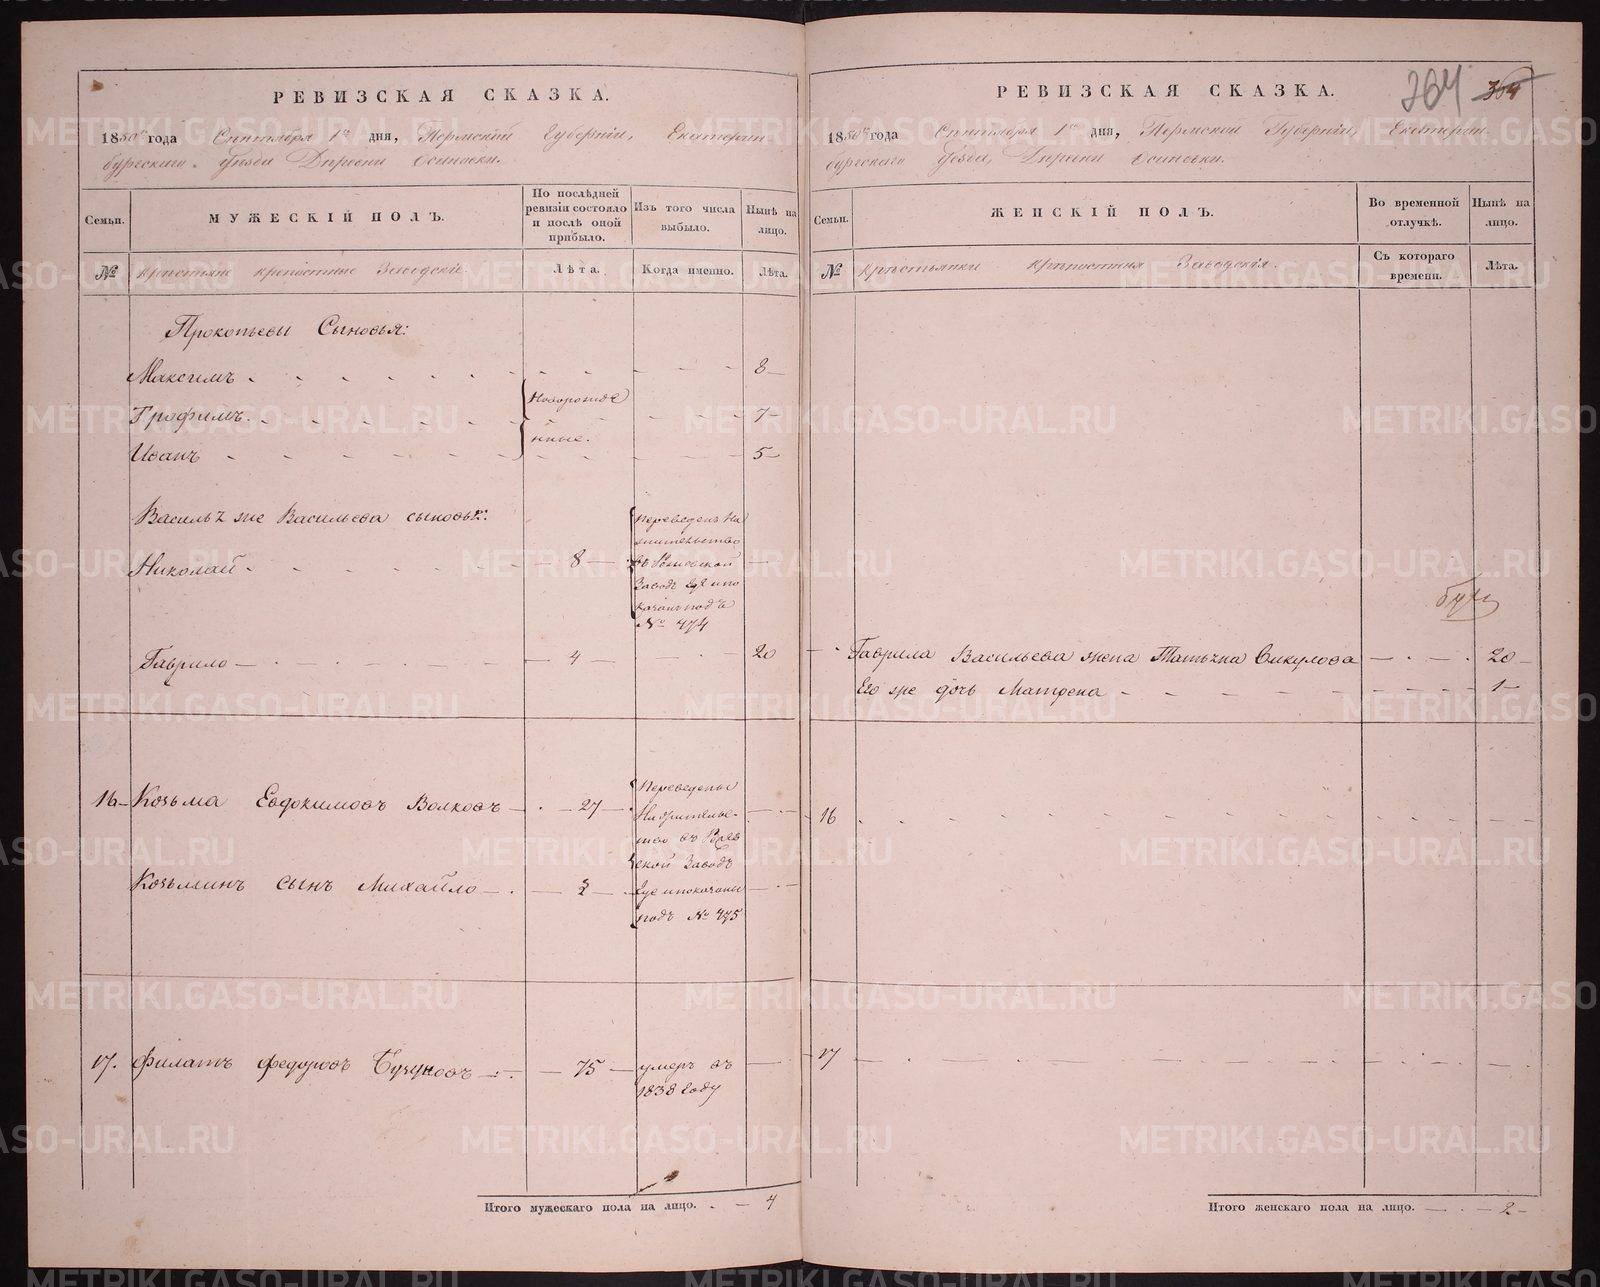 РЕВИЗСКАЯ СКАЗКА.
1850го года Сентября 1го дня, Пермской Губернии, Екатерин-
бургскаго Уезда Деревни Осиновки.
Семьи.
МУЖЕСКІЙ ПОЛЪ.
По послѣдней ревизіи состояло и послѣ оной прибыло.
Изъ того числа выбыло.
Нынѣ на лицо.
№
Крестьяне крепостные Заводскіе.
Лѣта.
Когда именно.
Лѣта.
Прокопьевы Сыновья:
Максимъ 8
Трофимъ Новорожде 7
нные.
Иванъ 5
Василья же Васильева сыновья:
Переведенъ на
жительство
Николай 8 въ
Заводъ где и по
казанъ подъ
№ 474
Гаврило 4 20
16 Козьма Евдокимовъ Волковъ 27
Переведены
На жительс-
тво въ Рев
ской Заводъ
Козьминъ сынъ Михайло 2 где и показаны
подъ № 475
17. Филатъ Федоровъ 75 умеръ въ
1838 году
Итого мужескаго пола на лицо. 4
364
364
РЕВИЗСКАЯ СКАЗКА.
1850го года Сентября 1го дня, Пермской Губернии, Екатерин-
бургскаго Уезда, Деревни Осиновки.
Семьи.
ЖЕНСКІЙ ПОЛЪ.
Во временной отлучкѣ.
Нынѣ на лицо.
№
Крестьянки Крепостныя Заводскія.
Съ котораго времени.
Лѣта.
Гаврила Васильева жена Татьяна Викулова 20
Его же дочь Матрена 1
16
17
Итого женскаго пола на лицо. 2
METRIKI.GASO-URAL.RU